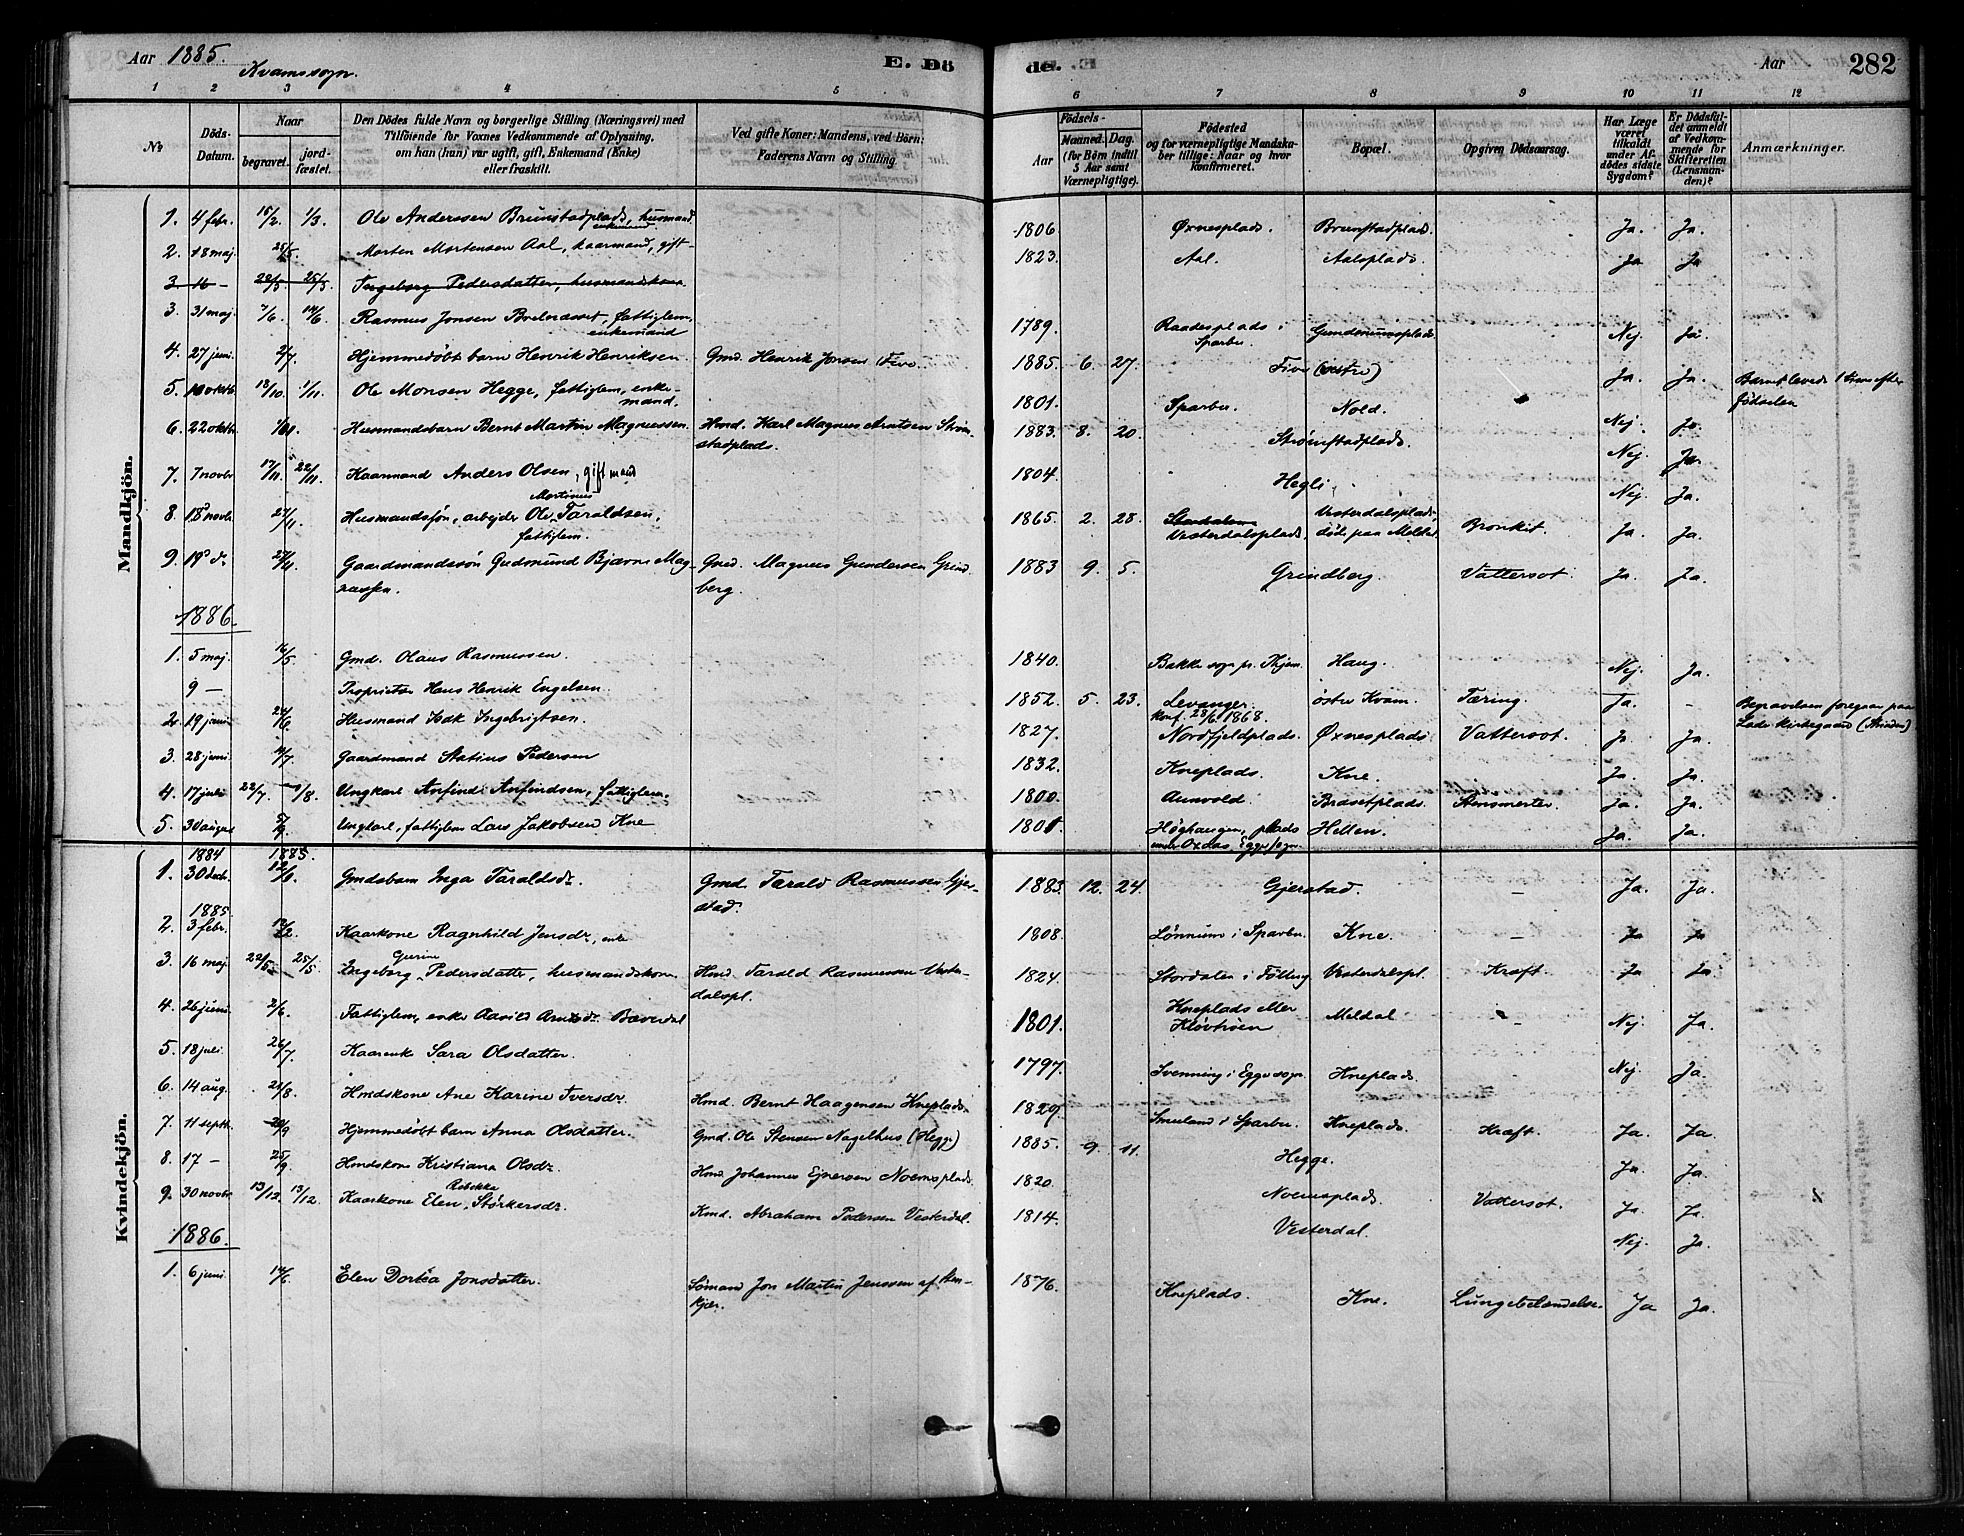 Aar 1885. E. Döde. Aar 282
Kvamssogn.
1 2 3 4 5 6 7 8 9 10 11 12
№
Döds-Datum.
Naar
begravet.
jordfæstet.
Den Dödes fulde Navn og borgerlige Stilling (Næringsvei) med
Tilföiende for Voxnes Vedkommende af Oplysning,
om han (hun) var ugift, gift, Enkemand (Enke)
eller fraskilt.
Ved gifte Koner: Mandens, ved Börn:
Faderens Navn og Stilling.
Födsels-
Aar
Maaned. Dag.
(for Börn indtil
5 Aar samt
Værnepligtige).
Födested
og for værnepligtige Mandskaber tillige: Naar og hvor
konfirmeret.
Bopæl.
Opgiven Dödsaarsag.
Har Læge
været
tilkaldt
under Afdödes sidste
Sygdom?
Er Dödsfaldet anmeldt
af Vedkommende for
Skifteretten
(Lensmanden)?
Anmærkninger.
Mandkjön.
1. 4 febr. 15/2. 1/3. Ole Anderssen Brunstadplads, husmand, enkemand 1806 Øxnesplads. Brunstadplads. Ja. Ja.
2. 18 maj. 25/5. Morten Mortensen Aal, kaarmand, gift 1823. Aal. Aalsplads. Ja Ja
3 16 — 22/5 25/5. Ingeborg Pedersdatter, husmandskone
3. 31 maj. 7/6. 14/6. Rasmus Jonsen, fattiglem, enkemand 1789. Raadesplads i Sparbu. Nej. Ja.
4. 27 juni. 2/7. Hjemmedøbt barn Henrik Henriksen. Gmd. Henrik Jonsen Five. 1885. 6. 27. Five (østre) Ja. Ja. Barnet levede 1 time efter fødselen
5. 10 oktb. 18/10. 1/11. Ole Monsen Hegge, fattiglem, enkemand. 1801. Sparbu. Nold. Nej. Ja.
6. 22 oktbr. Husmandsbarn Bernt Martin Magnussen. Hmd. Karl Magnus Arntsen Strømstadplads. 1883. 8. 20. Strømstadplads. Nej. Ja.
7. 7 novbr. 17/11. 22/11. Kaarmand Anders Olsen, gift mand 1804. Hegli. Nej. Ja.
8. 18 novb. 27/11. Husmandssøn, arbejder Ole Martinus Taraldsen, fattiglem. 1865. 2. 28. Vesterdalsplads. Vesterdalsplads, døde paa Bronkit. Ja. Ja.
9. 19 d. 27/11. Gaardmandssøn Gudmund Bjarne Magnussen. Gmd. Magnus Gundersen Grindberg. 1883 9. 5. Grindberg. Vattersot. Ja. Ja.
1886.
1. 5 maj. 16/5. Gmd. Olaus Rasmussen. 1840. Haug. Nej. Ja.
9 — Proprietær Hans Henrik Engelsen. 1852. 5. 23. Levanger. konf. 28/6 1868. østre Kvam. Tæring. Ja. - Begravelsen foregaar paa Lade kirkegaard (Strinden)
2. 19 juni. 24/6. Husmand Isak Ingebrigtsen. 1827. Nordfjeldplads. Øxnesplads. Vattersot. Ja Ja.
3. 28 juni. 4/7. Gaardmand Statius Pedersen 1832. Kneplads. Kne. Ja. Ja.
4. 17 juli 22/7. 1/8. Ungkarl Anfind Anfindsen, fattiglem. 1800. Aunvold. Brasetplads. Stensmerter. Ja. Ja.
5. 30 august 5/9. Ungkarl, fattiglem Lars Jakobsen Kne 1801. Høghaugen, plads under Oxaas, Egge sogn. Hellem. Ja. Ja.
Kvindekjön.
1884 1885.
1. 30 decb. Gmdsbarn Inga Taraldsdr. Gmd. Tarald Rasmussen Gjerstad. 1883. 12. 24. Gjerstad. — Ja. Ja.
1885.
2. 3 febr. Kaarkone Ragnhild Jensdr, enke 1808. Lønnum i Sparbu. Kne. — Ja Ja
3. 16 maj. 22/5. 25/5. Ingeborg Gurine Pedersdatter, husmandskone. Hmd. Tarald Rasmussen Vesterdalspl. 1824. Stordalen i Følling. Vesterdalspl. Kræft. Ja Ja
4. 26 juni. Fattiglem, enke Aavild Arntsdr. Bæverdal 1801. Kneplads eller Kløvtrøen Meldal. — Nej. Ja.
5. 18 juli. 26/7. Kaarenke Sara Olsdatter. 1797. Svenning i Egge sogn. Kneplads. Nej. Ja.
6. 14 aug. 21/8. Hmdskone Ane Karine Iversdr. Hmd. Bernt Haagensen Kneplads. 1829. i Sparbu. Kneplads. Kræft. Ja. Ja.
7. 11 septb. 20/9. Hjemmedøbt barn Anna Olsdatter. Gmd. Ole Stensen Nagelhus (Hegge) 1885. 9. 11. Hegge. Ja. Ja.
8. 17 — 25/9. Hmdskone Kristiana Olsdr. Hmd. Johannes Ejnersen Noemsplads. 1820. Noemsplads. Vattersot. Ja. Ja.
9. 30 novbr. 13/12. 13/12. Kaarkone Elen Rebekka Størkersdr. Kmd. Abraham Pedersen Vesterdal. 1814. Vesterdal. Nej. Ja.
1886.
1. 6 juni. 14/6. Elen Dortea Jonsdatter. Sømand Jon Martin Jenssen af Stenkjær. 1876. Kneplads. Kne. Lungebetændelse. Ja Ja.